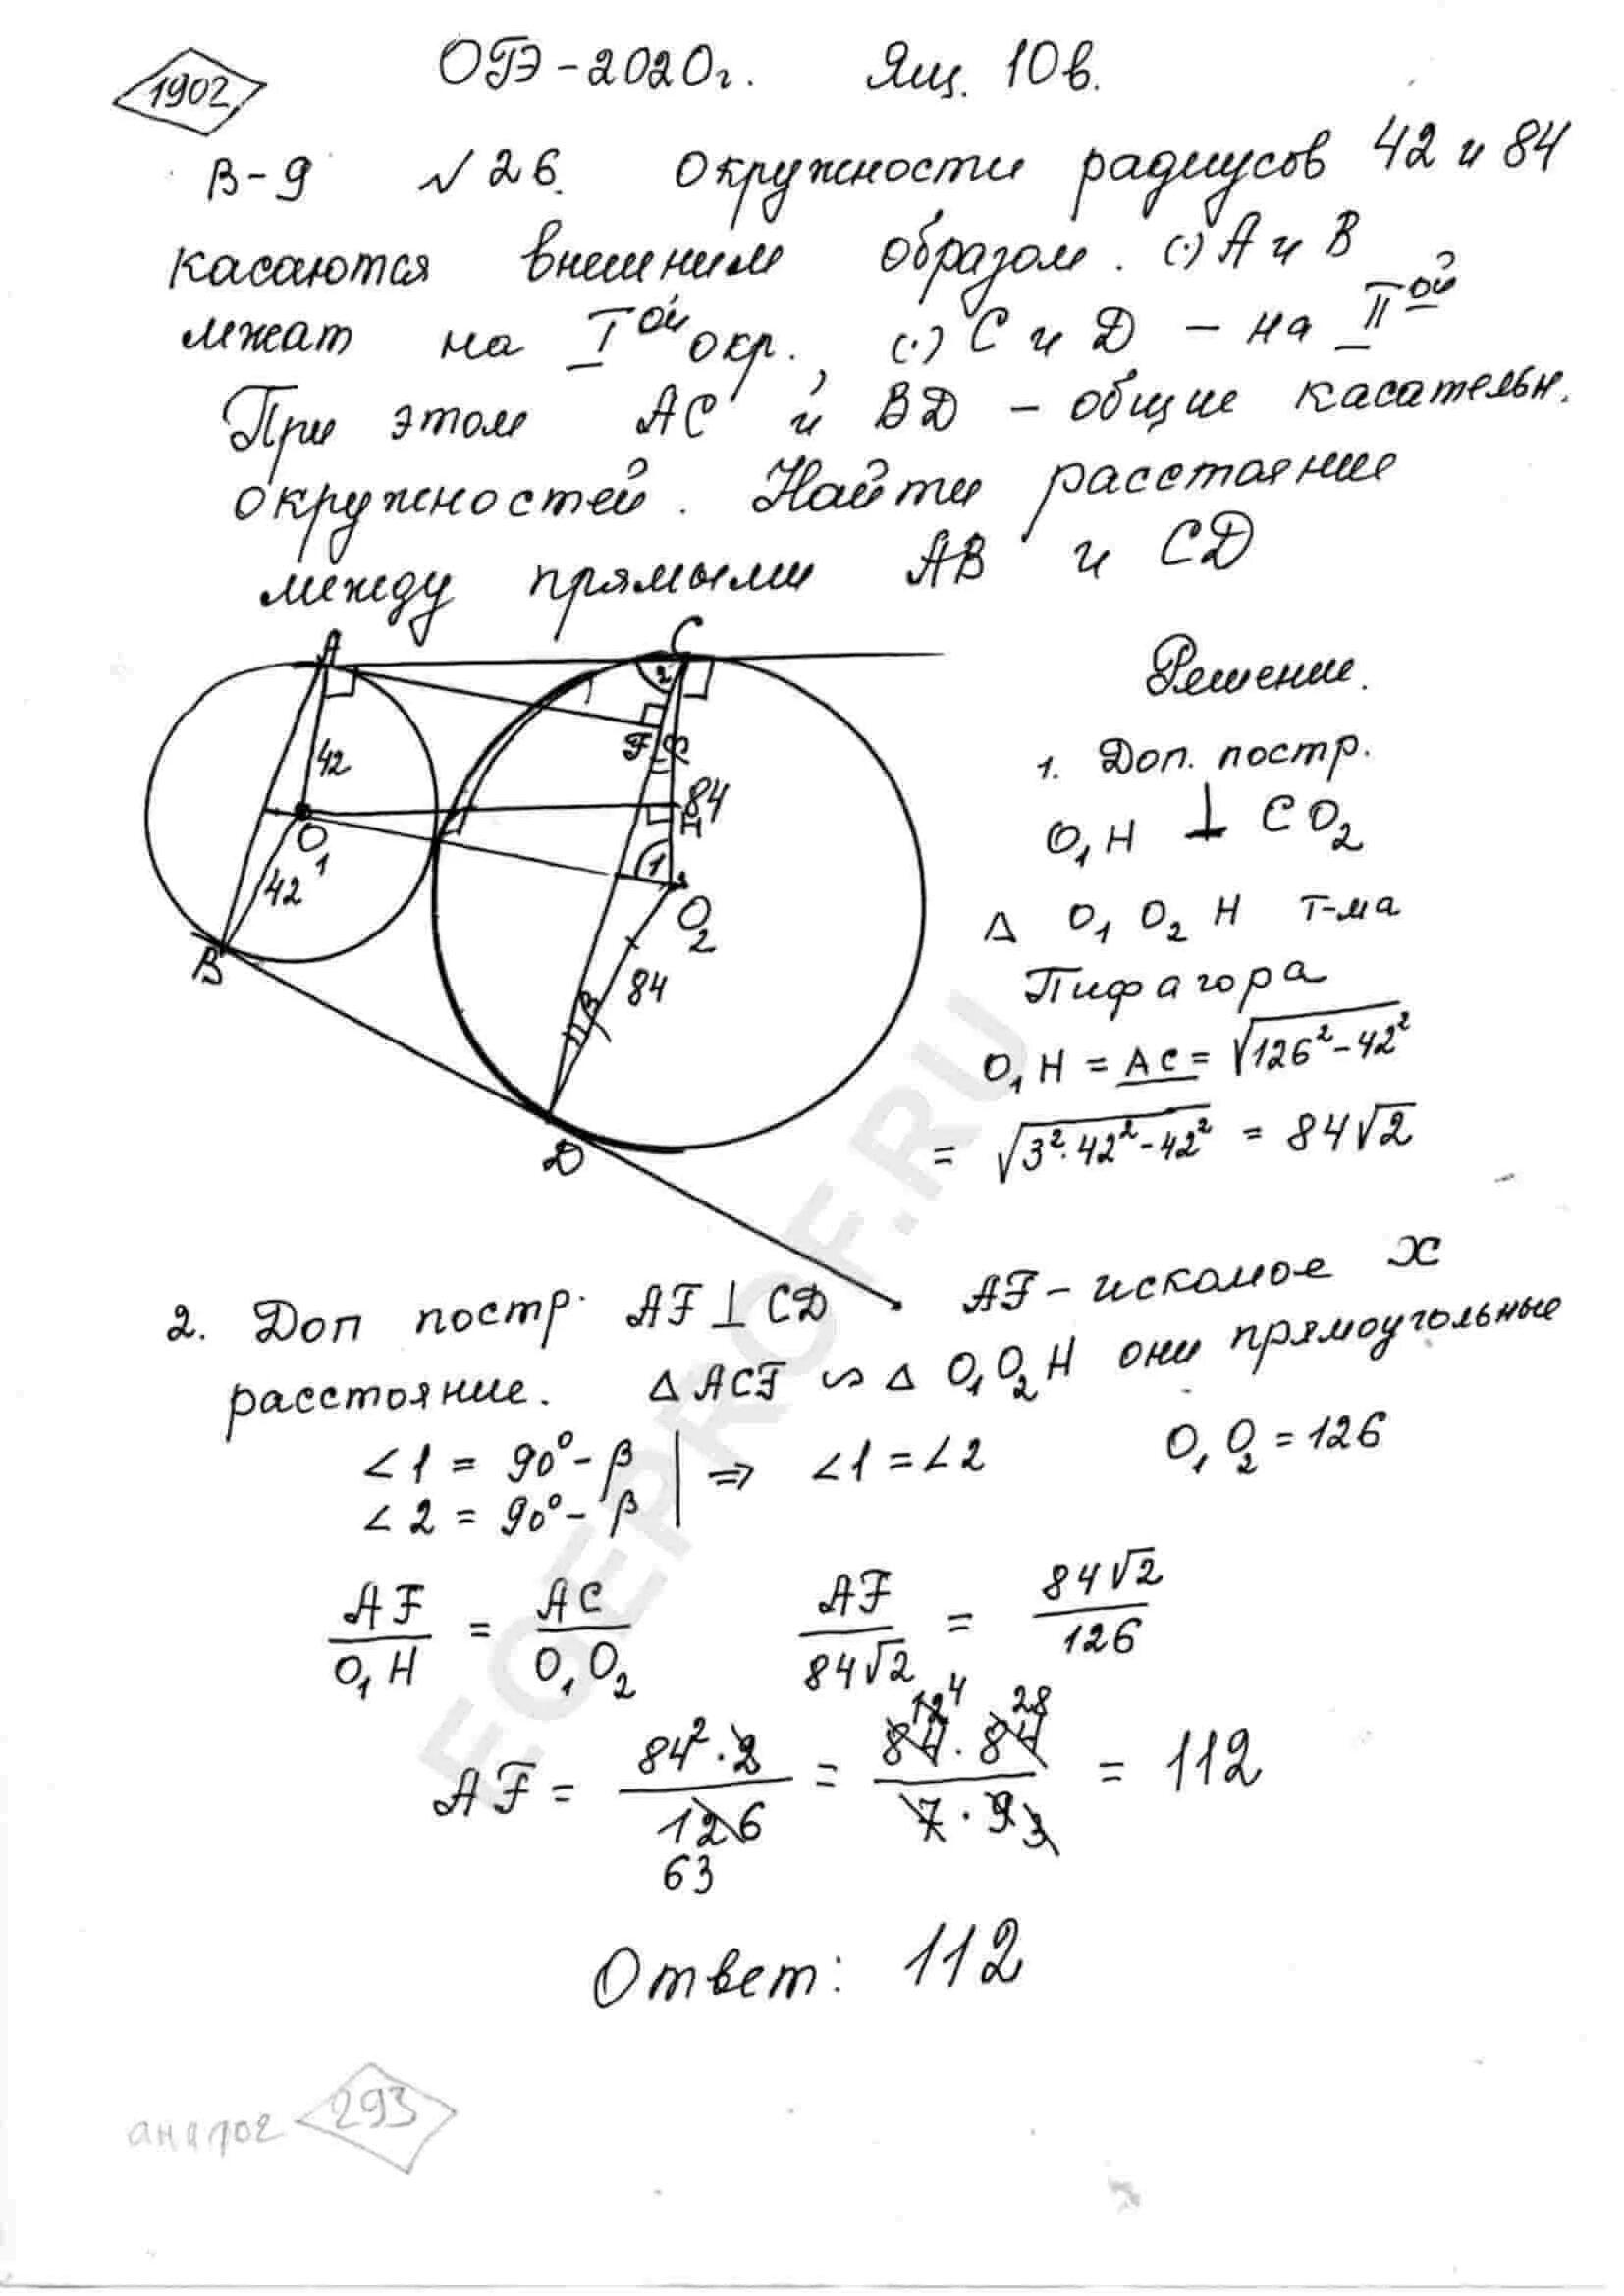 1902 ОГЭ-2020г. Ящ. 10в.
В-9 №26. Окружности радиусов 42 и 84
касаются внешним образом. (·) А и В
лежат на I ой окр., (·) С и D – на II ой
При этом АС и BD – общие касательн.
окружностей. Найти расстояние
между прямыми АВ и CD
A C
Решение.
2
42 F β
1. Доп. постр.
84
H
O₁ 1
O₁H ⊥ CO₂
42 O₂
Δ O₁O₂H т-ма
B
84
Пифагора
β
O₁H = AC = √126² - 42²
= √3²·42² - 42² = 84√2
D
2. Доп постр. AF ⊥ CD AF – искомое x
расстояние. Δ ACF ∽ Δ O₁O₂H они прямоугольные
∠1 = 90° - β | ⇒ ∠1 = ∠2 O₁O₂ = 126
∠2 = 90° - β
AF/O₁H = AC/O₁O₂ AF/84√2 = 84√2/126
AF = 84²·2/126 63 = 84 12 4 · 84 28/7·9 3 = 112
Ответ: 112
аналог 293
EGEPROF.RU